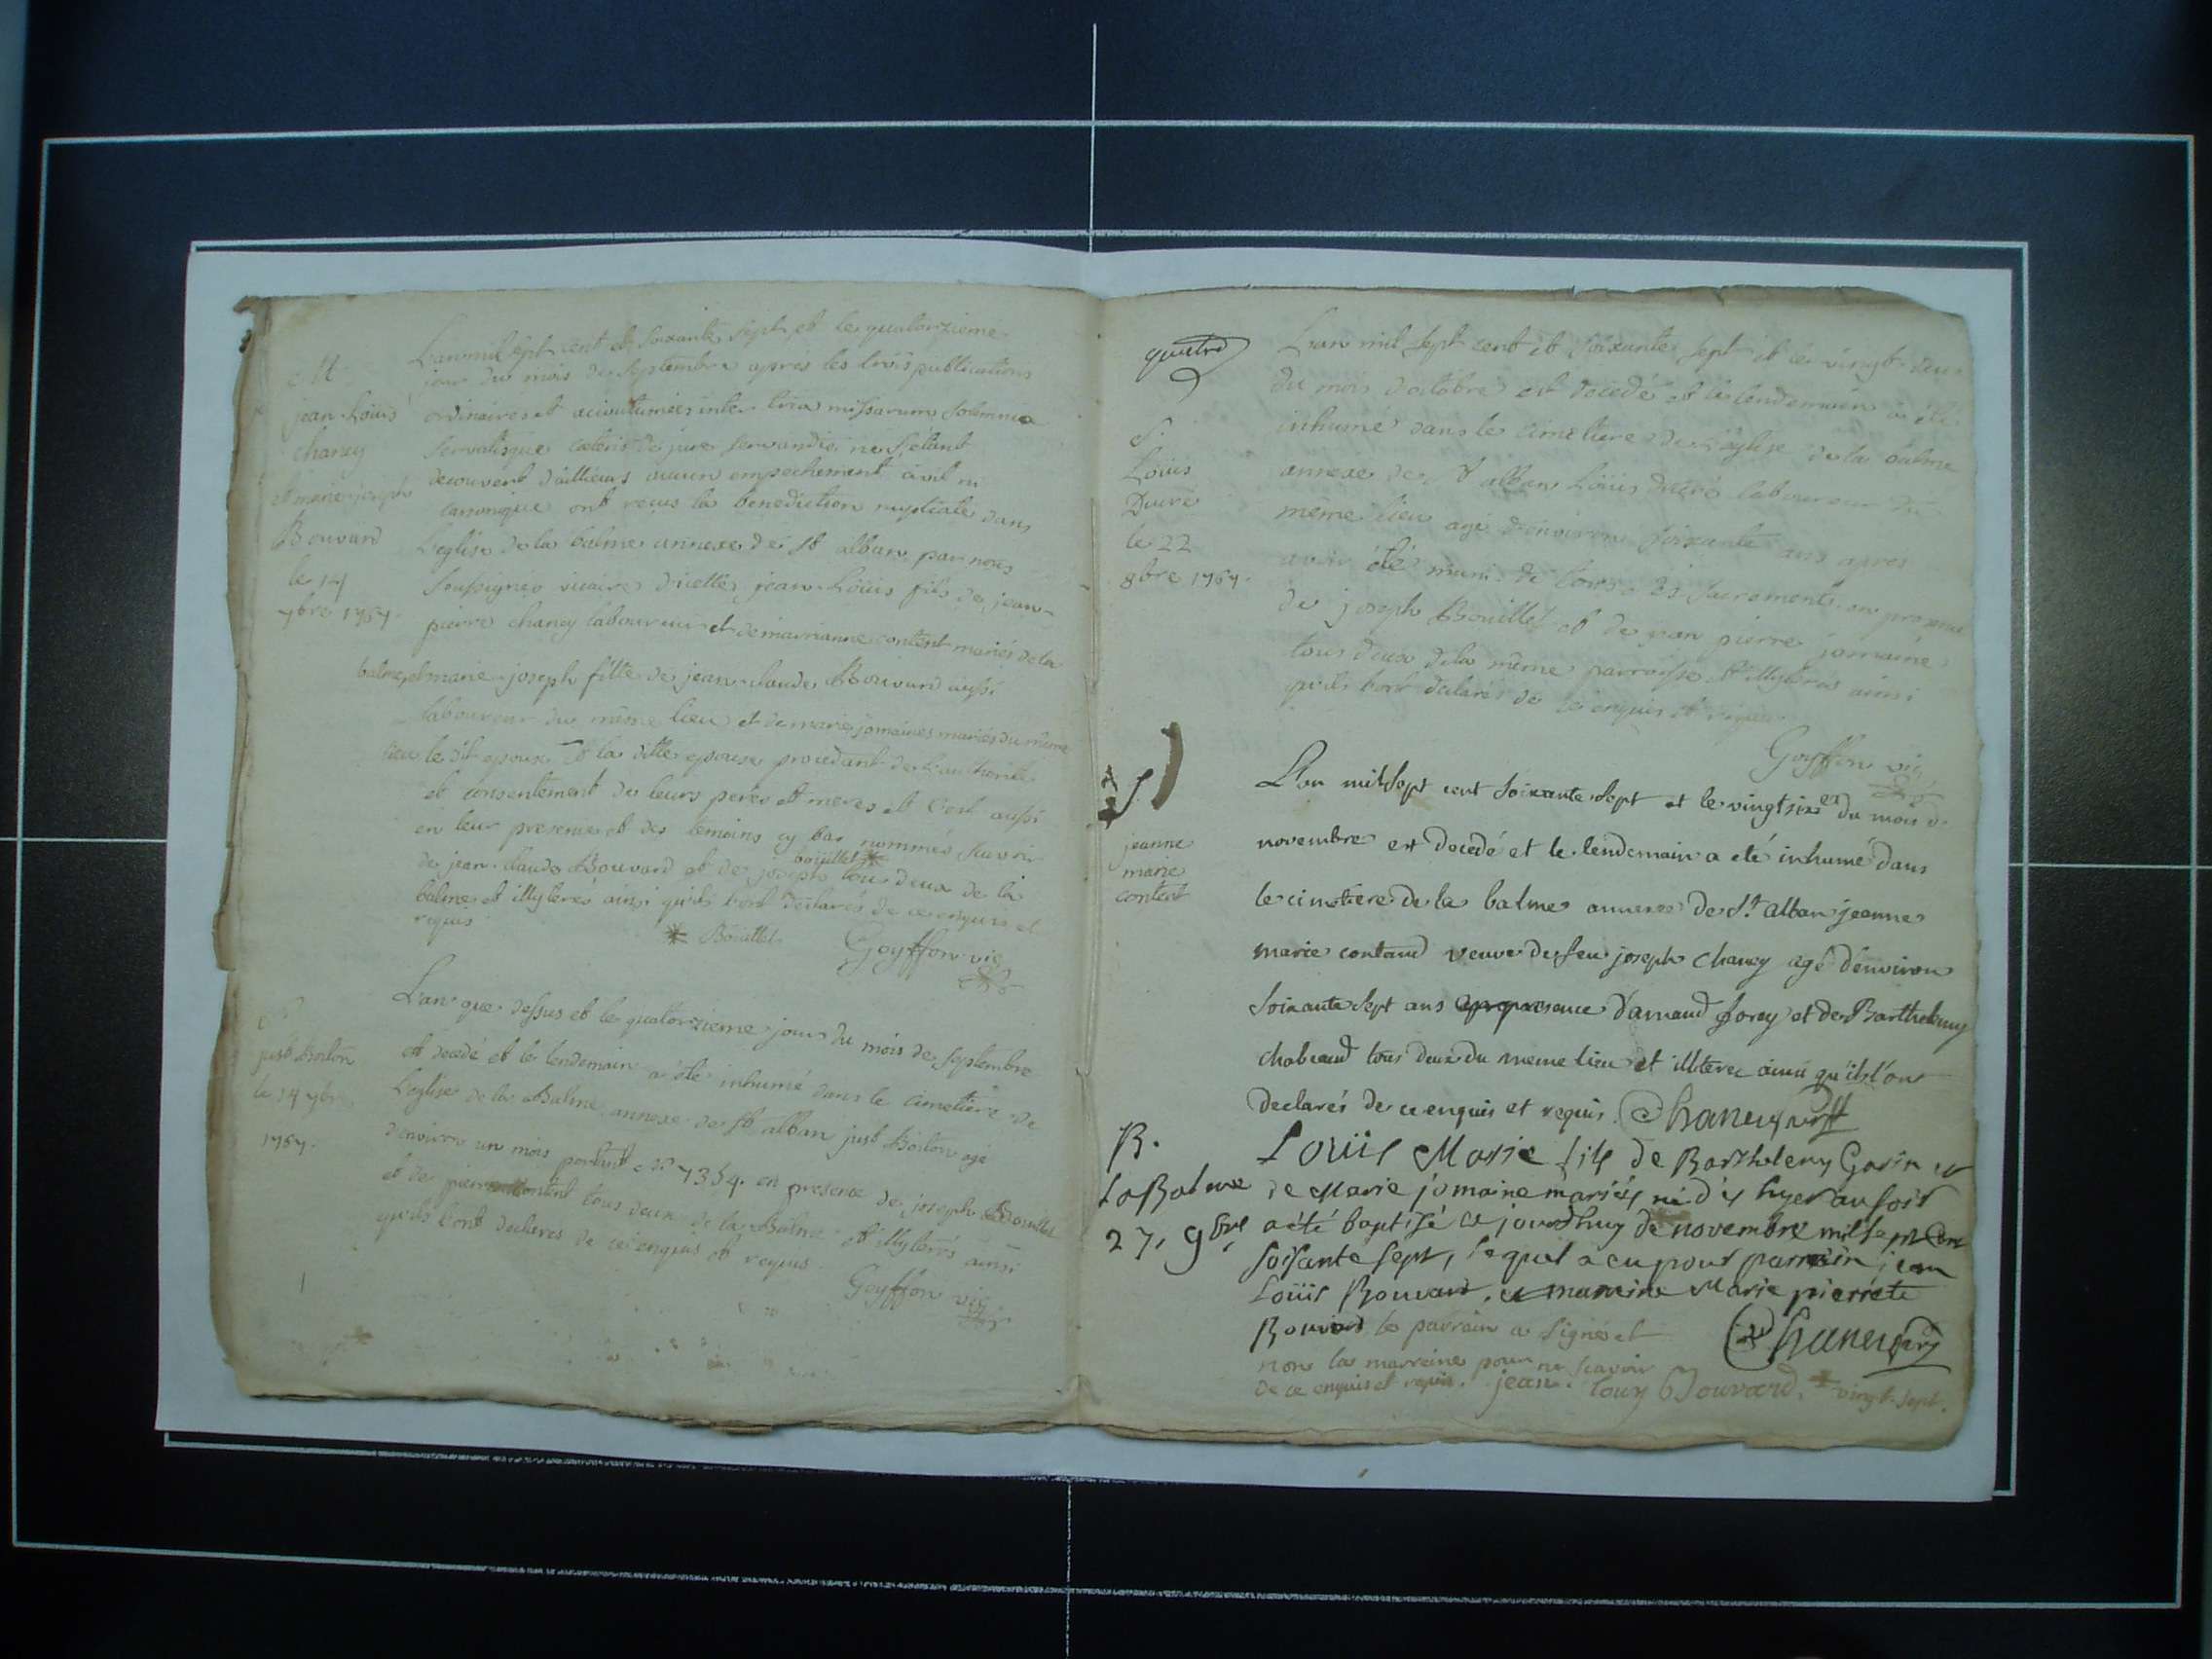 M
jean-Loüis
chaney
et marie joseph
Bouvard
le 14
7bre 1767.
L'an mil sept cent et soixante sept et le quatorzieme
jour du mois de septembre après les trois publications
ordinaires et accoutumées inter missarum solemnia
servatisque caeteris de jure servandis ne s'étant
decouvert d'ailleurs aucun empechement civil ni
canonique ont reçus la benediction nuptiale dans
L'eglise de la balme annexe de st alban par nous
soussignés vicaire d'icelle, jean-Loüis fils de jean-
pierre chaney laboureur et de marianne contant mariés de la
balme, et marie-joseph fille de jean-claude Bouvard aussi
laboureur du même lieu et de marie jomaines mariés du même
lieu le dit epoux et la ditte epouse procedant de l'authorité
et consentement de leurs peres et meres et c'est aussi
en leur presence et des temoins cy bas nommés sçavoir
de jean-claude Bouvard et de joseph bouillet * tous deux de la
balme et illyterés ainsi qu'ils l'ont declarés de ce enquis et
requis
* Bouillet. Goyffon vic
S.
just Boiton
le 14 7bre
1767.
L'an que dessus et le quatorzieme jour du mois de septembre
est decedé et le lendemain a été inhumé dans le cimetière de
L'eglise de la Balme annexe de st alban just Boiton agé
d'environ un mois portant n° 7354. en presence de joseph Bouillet
et de pierre contant tous deux de la Balme et illyterés ainsi
qu'ils l'ont declarés de ce enquis et requis
Goyffon vic
quatre
S.
Loüis
Ducré
le 22
8bre 1767.
L'an mil sept cent et soixante sept et le vingt-deux
du mois d'octobre est decedé et le lendemain a été
inhumé dans le cimetiere de l'eglise de la balme
annexe de st alban Loüis ducré laboureur du
même lieu agé d'environ soixante ans après
avoir été muni de tous les sacrements en presence
de joseph Bouillet et de jean pierre jomaine
tous deux de la même parroisse et illyterés ainsi
qu'ils l'ont declarés de ce enquis et requis
Goyffon vic
S.
jeanne
marie
contat
L'an mil sept cent soixante sept et le vingt six du mois de
novembre est decedé et le lendemain a eté inhumé dans
le cimetiere de la balme annexe de St alban jeanne
marie contand veuve de feu joseph chaney agé d'environ
soixante sept ans en presence d'arnaud Jorey et de Barthelemy
chabaud tous deux du meme lieu et illiterez ainsi qu'ils l'on
declarés de ce enquis et requis. Chaney
B.
La Balme
27. 9bre
Loüis Marie fils de Barthelemy Gorin et
de Marie jomaine mariés, né d'és hyer au soir
a été baptisé ce jourd'huy * de novembre mil sept cent
soisante sept, lequel a eu pour parrain jean
Loüis Bouvard, et marreine Marie pierrete
Bouvard le parrain a signé et
non la marreine pour ne sçavoir
de ce enquis et requis. jean. louy Bouvard. * vingt-sept.
Chaney